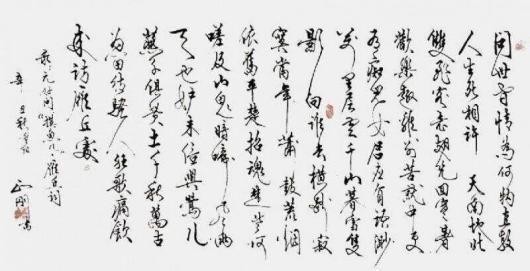 问世間情为何物直教
人生死相许 天南地北
雙飛客老翅几回寒暑
歡樂趣離别苦就中更
有癡兒女君应有语渺
万里层雲千山暮雪隻
影向谁去横汾 寂
寞當年蕭鼓荒烟
依舊平楚招魂楚些何
嗟及山鬼暗啼風雨
天也妒未信與鶯儿
燕子俱黄土千秋萬古
为留待騷人狂歌痛飲
来訪雁丘處
录元好问摸魚儿雁丘词
辛丑秋